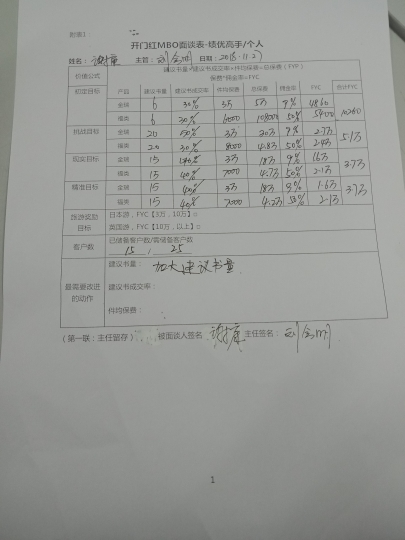 附表1
开门红MBO面谈表-绩优高手/个人
姓名： 主管： 日期：2018.11.27
价值公式 建议书量×建议书成交率×件均保费=总保费（FYP）
保费*佣金率=FYC
初定目标 产品 建议书量 建议书成交率 件均保费 总保费 佣金率 FYC 合计FYC
金瑞 6 30% 3万 5万 9% 4860 10260
福类 6 30% 6000 10800 50% 5400
挑战目标 金瑞 20 50% 3万 30万 9% 2.7万 5.1万
福类 20 30% 8000 4.8万 50% 2.4万
现实目标 金瑞 15 40% 3万 18万 9% 1.6万 3.7万
福类 15 40% 7000 4.2万 50% 2.1万
精准目标 金瑞 15 40% 3万 18万 9% 1.6万 3.7万
福类 15 40% 7000 4.2万 50% 2.1万
旅游奖励目标 日本游，FYC【3万，10万】□
英国游，FYC【10万，以上】□
客户数 已储蓄客户数/需储蓄客户数
15 , 25
最需要改进的动作 建议书量：加大建议书量
建议书成交率：
件均保费：
（第一联：主任留存） 被面谈人签名： 主任签名：
1